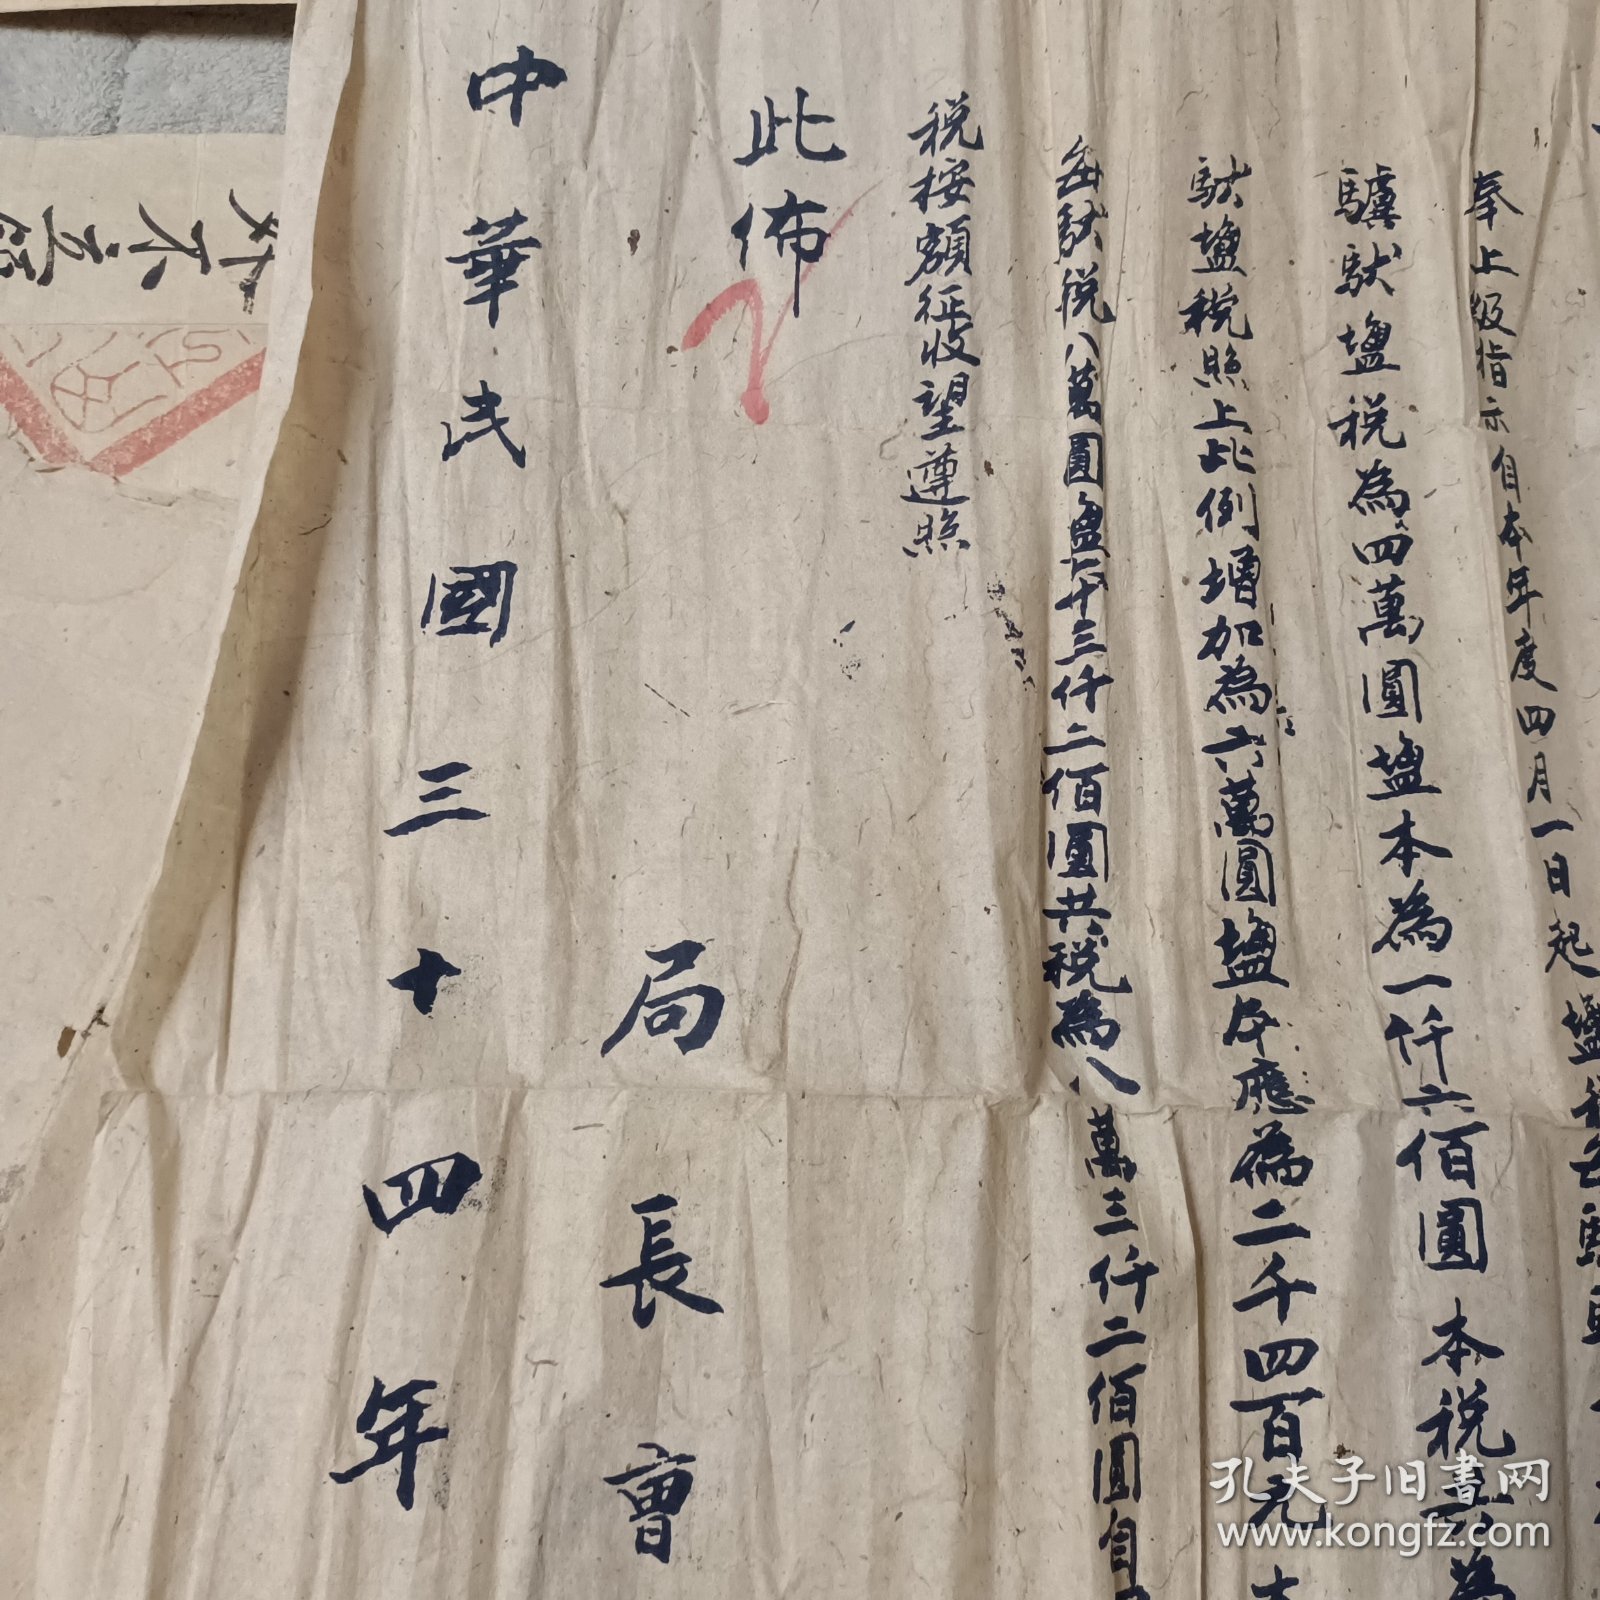 奉上級指示自本年度四月一日起鹽税每
驥馱鹽税為四萬圓鹽本為一仟六佰圓本税共為
馱鹽税照上比例增加為六萬圓鹽本應為二千四百元
每馱税八萬圓鹽本三仟二佰圓共税為八萬三仟二佰圓自
税按額征收望遵照
此佈
局長曾
中華民國三十四年
孔夫子旧書网
www.kongfz.com